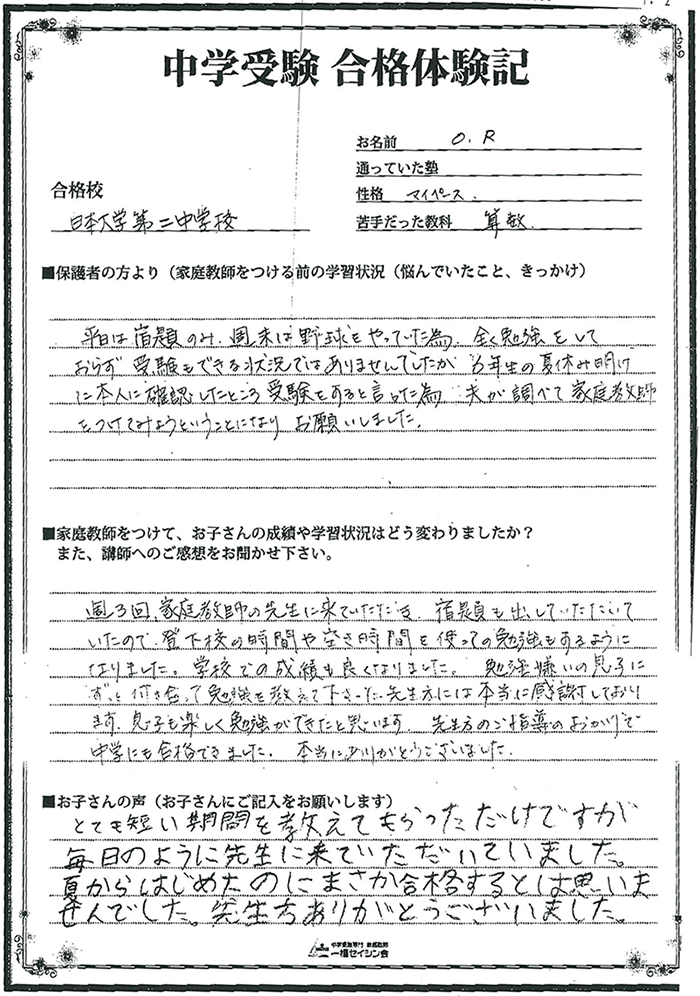 中学受験 合格体験記
お名前 O.R
通っていた塾
合格校
性格 マイペース.
日本大学第二中学校
苦手だった教科 算数
■保護者の方より(家庭教師をつける前の学習状況(悩んでいたこと、きっかけ)
平日は宿題のみ、週末は野球をやっていた為、全く勉強をして
おらず 受験もできる状況ではありませんでしたが 6年生の夏休み明け
に本人に確認したところ受験をすると言った為 夫が調べて家庭教師
をつけてみようということになり お願いしました.
■家庭教師をつけて、お子さんの成績や学習状況はどう変わりましたか?
また、講師へのご感想をお聞かせ下さい。
週3回、家庭教師の先生に来ていただき、宿題も出していただいて
いたので、登下校の時間や空き時間を使っての勉強もするように
なりました。学校での成績も良くなりました。勉強嫌いの息子に
ずっと付き合って勉強を教えて下さった先生方には本当に感謝しており
ます。息子も楽しく勉強ができたと思います。先生方のご指導のおかげで
中学にも合格できました。本当にありがとうございました.
■お子さんの声(お子さんにご記入をお願いします)
とても短い期間を教えてもらっただけですが
毎日のように先生に来ていただいていました。
夏からはじめたのにまさか合格するとは思いま
せんでした。先生方ありがとうございました。
中学受験専門 家庭教師
一橋セイシン会